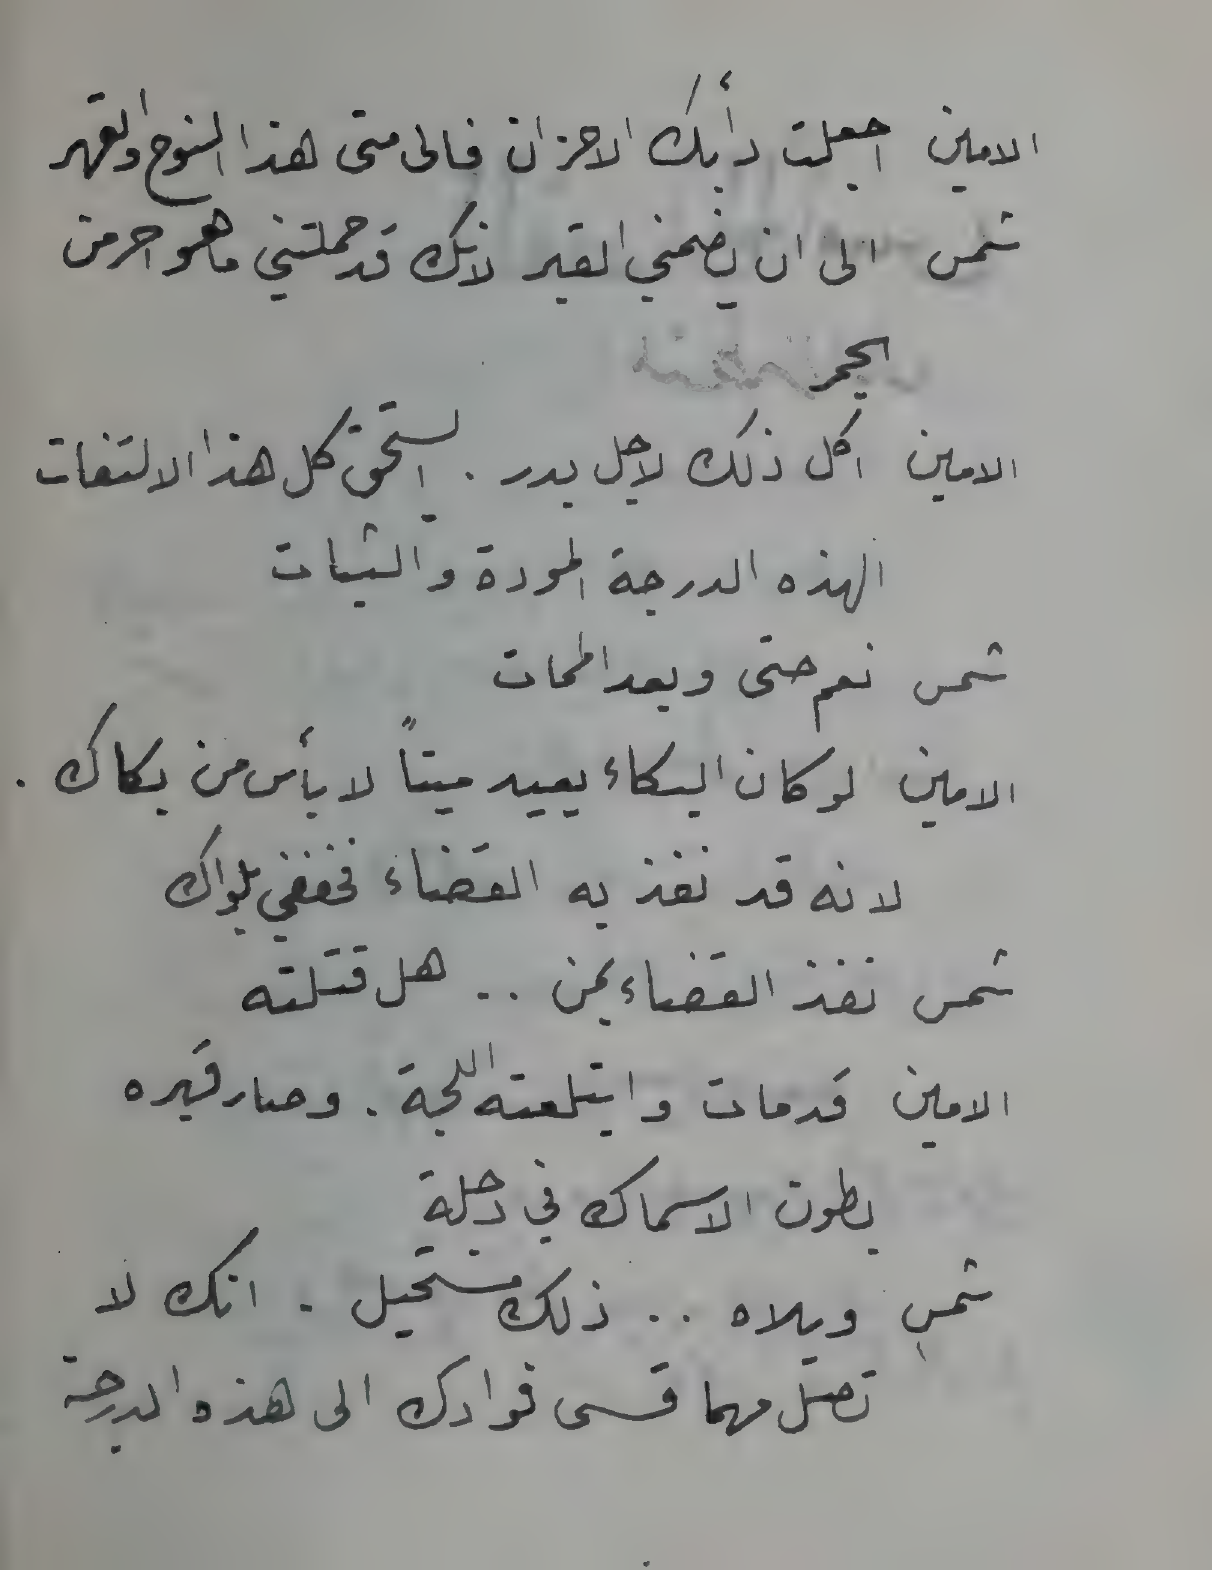 الامين اجعلت دأبك الاحزان فالى متى هذا النوح والقهر
شمس الى ان يضمني القبر لانك قد حملتني ما هو احر من
الجمر
الامين اكل ذلك لاجل بدر . ايستحق كل هذا الالتفات
الهذه الدرجة المودة والثبات
شمس نعم حتى وبعد الممات
الامين لو كان البكاء يعيد ميتاً لا بأس من بكاك .
لانه قد نفذ به القضاء فخففي بلواك
شمس نفذ القضاء بمن .. هل قتلته
الامين قد مات وابتلعته اللجة . وصار قبره
بطون الاسماك في دجلة
شمس ويلاه .. ذلك مستحيل . انك لا
تصل مهما قسى فوادك الى هذه الدرجة